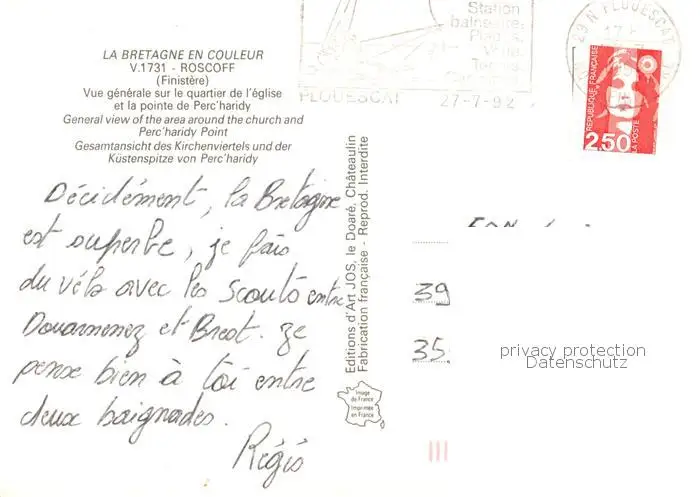 LA BRETAGNE EN COULEUR
V.1731 - ROSCOFF
(Finistère)
Vue générale sur le quartier de l'église
et la pointe de Perc'haridy
General view of the area around the church and
Perc'haridy Point
Gesamtansicht des Kirchenviertels und der
Küstenspitze von Perc'haridy
Décidément, la Bretagne
est superbe, je fais
du vélo avec les scouts entre
Douarnenez et Brest. Je
pense bien à toi entre
deux baignades.
Régis
Editions d'Art JOS, le Doaré, Châteaulin
Fabrication française - Reprod. Interdite
Image
de France
Imprimée
en France
Station
balnéaire
PLOUESCAT 27-7-92
29 N PLOUESCAT
REPUBLIQUE FRANÇAISE
2,50
LA POSTE
39
35.
privacy protection
Datenschutz